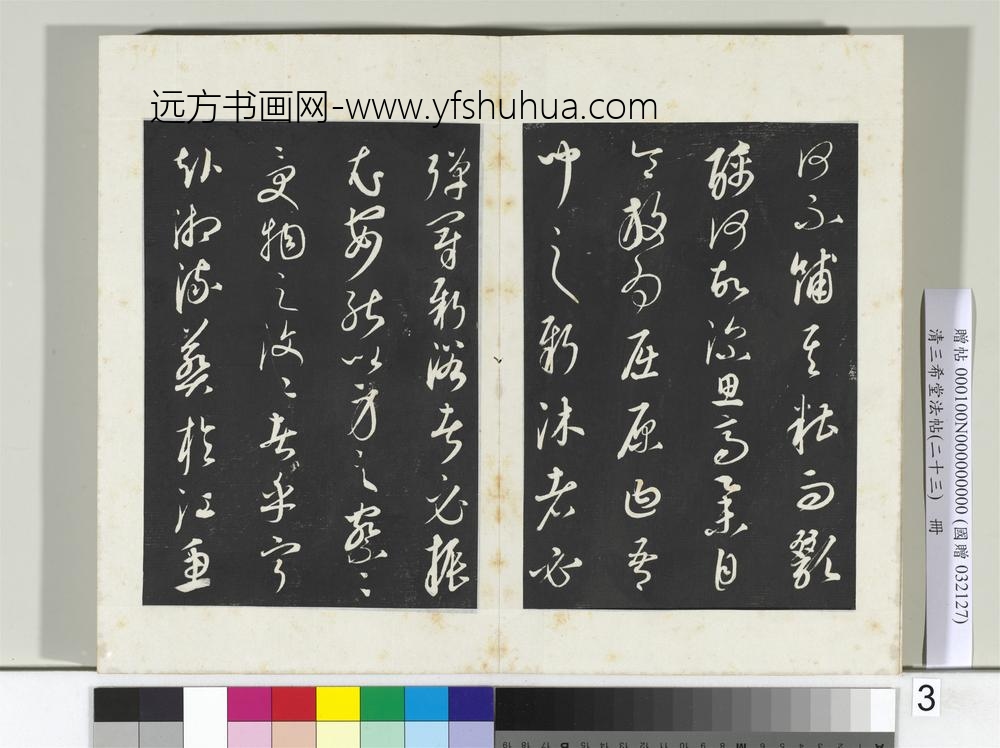 远方书画网-www.yfshuhua.com
何不餔其糟而歠
醨何故深思高舉自
令放為屈原曰吾
聞之新沐者必
彈冠新浴者必振
衣安能以身之察〻
受物之汶〻者乎寧
赴湘流葬於江魚
贈帖 000100N000000000 (國贈 032127)
清三希堂法帖(二十三) 冊
3